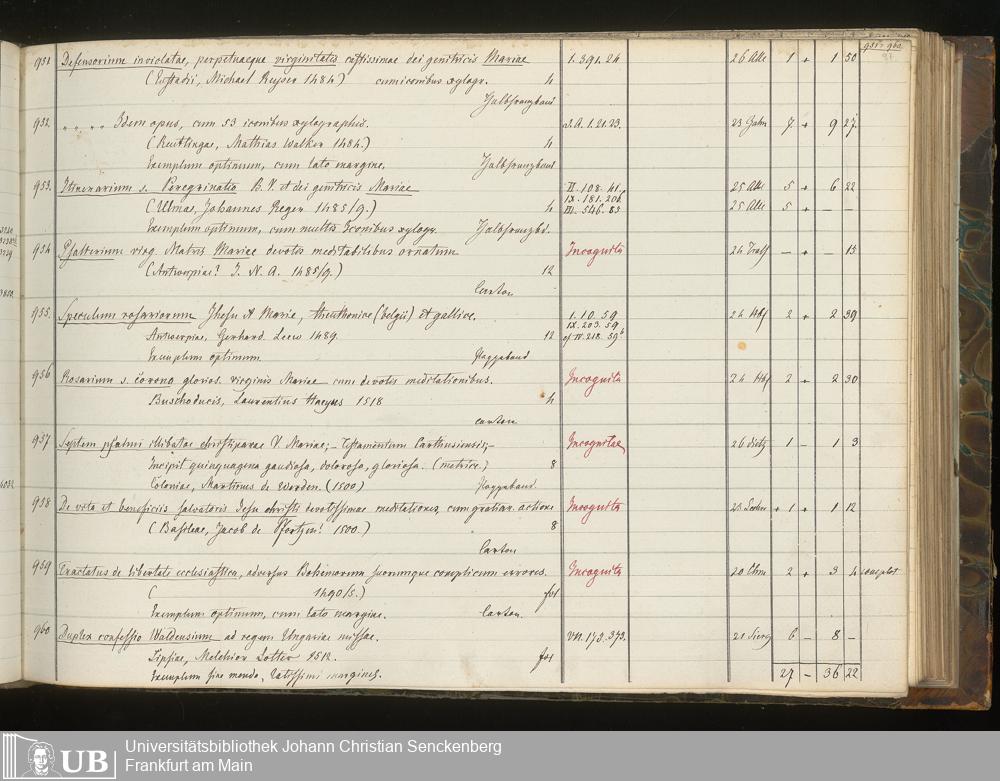 951-960
951. Defensorium inviolatae, perpetuaeque virginitatis castissimae dei genitricis Mariae I. 391. 24 26 Alb 1 + 1 50
Michael Reyser 1484) cum iconibus xylogr. 4
Halbfranzband
952. " " " " Idem opus, cum 53 iconibus xylographis. A. I. 21. 23. 23 7. + 9 27.
(Reutlingae, Mathias Walker 1484.) 4
Exemplum optimum, cum lato margine. Halbfranzband
953. Itinerarium s. Peregrinatio B. V. et dei genitricis Mariae II. 108. 41. 25 Alb 5 + 6 22
IX. 181. 206
(Ulmae, Johannes Reger 1485/9.) 4 III. 546. 83 25 Alb 5 + — —
Exemplum optimum, cum multis Iconibus xylogr. Halbfranzbd.
954 Psalterium virg. Matris Mariae devotis meditabilibus ornatum Incognita 24 — + — 15
(Antwerpiae? I. N. A. 1485/9.) 12
Carton
955. Speculum rosariorum Jhesu et Marie, theuthonice (belgii) et gallice. I. 10. 59 24 2 + 2 39
IX. 203. 59
Antwerpiae, Gerhard. Leew 1489. 12 cf IV. 218. 59b
Exemplum optimum. Pappeband
956 Rosarium s. corona glorios. virginis Mariae cum devotis meditationibus. Incognita 24 2 + 2 30
Buschoducis, Laurentius Hayes 1518 4
carton
957 Septem psalmi illibatae christiparae V. Mariae; – Testamentum Carthusiensis; – Incognitae 26 Dietz 1 — 1 3
Incipit quinquagena gaudiosa, dolorosa, gloriosa. (metrice.) 8
Coloniae, Martinus de Werden. (1500) Pappeband.
958 De vita et beneficiis salvatoris Jesu christi devotissimae meditationes, cum gratiar. actione Incognita 23 + 1 + 1 12
(Basileae, Jacob de Pfortzen! 1500.) 8
Carton
959 Tractatus de libertate ecclesiastica, adversus Bohemorum suorumque complicum errores. Incognita 20 2 + 3 4 complet
( 1490/5.) fol
Exemplum optimum, cum lato margine. Carton.
960 Duplex confessio Waldensium ad regem Ungariae missae. VII. 173. 373. 21 6 — 8 —
Lipsiae, Melchior Lotter 1512. fol
Exemplum sine mendo, latissimi margines. 27 — 36 22
UB
Universitätsbibliothek Johann Christian Senckenberg
Frankfurt am Main